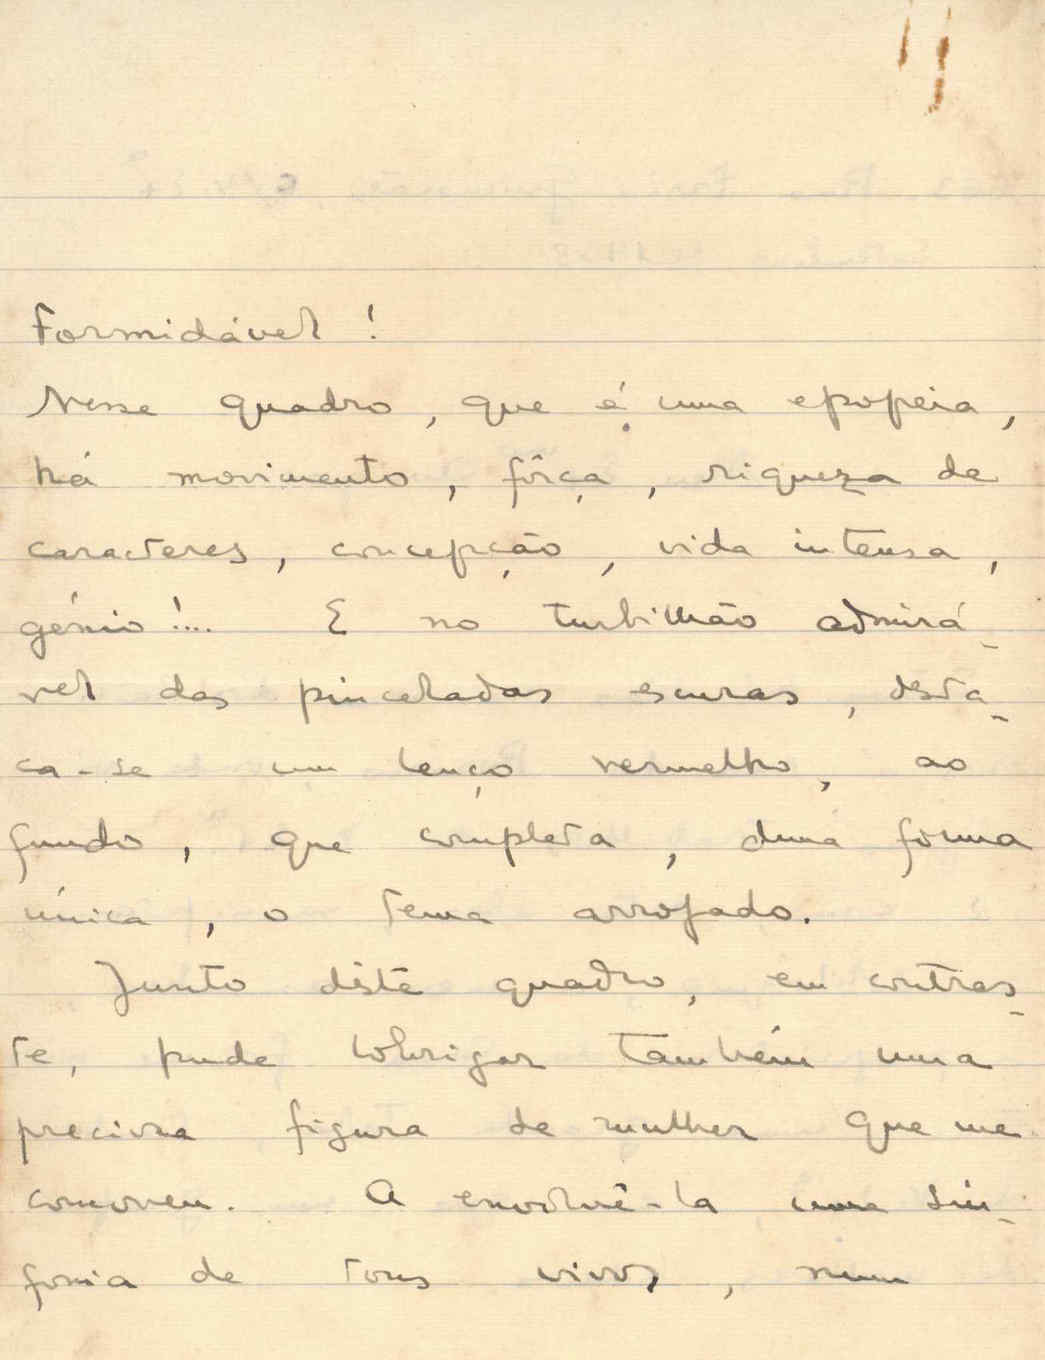 Formidável!
Nesse quadro, que é uma epopeia,
há movimento, fôrça, riqueza de
caracteres, concepção, vida intensa,
génio!... E no turbilhão admirá-
vel das pinceladas escuras, desta-
ca-se um lenço vermelho, ao
fundo, que completa, duma forma
única, o tema arrojado.
Junto dêste quadro, em contras-
te, pude lobrigar também uma
preciosa figura de mulher que me
comoveu. A envolvê-la uma sin-
fonia de tons vivos, num